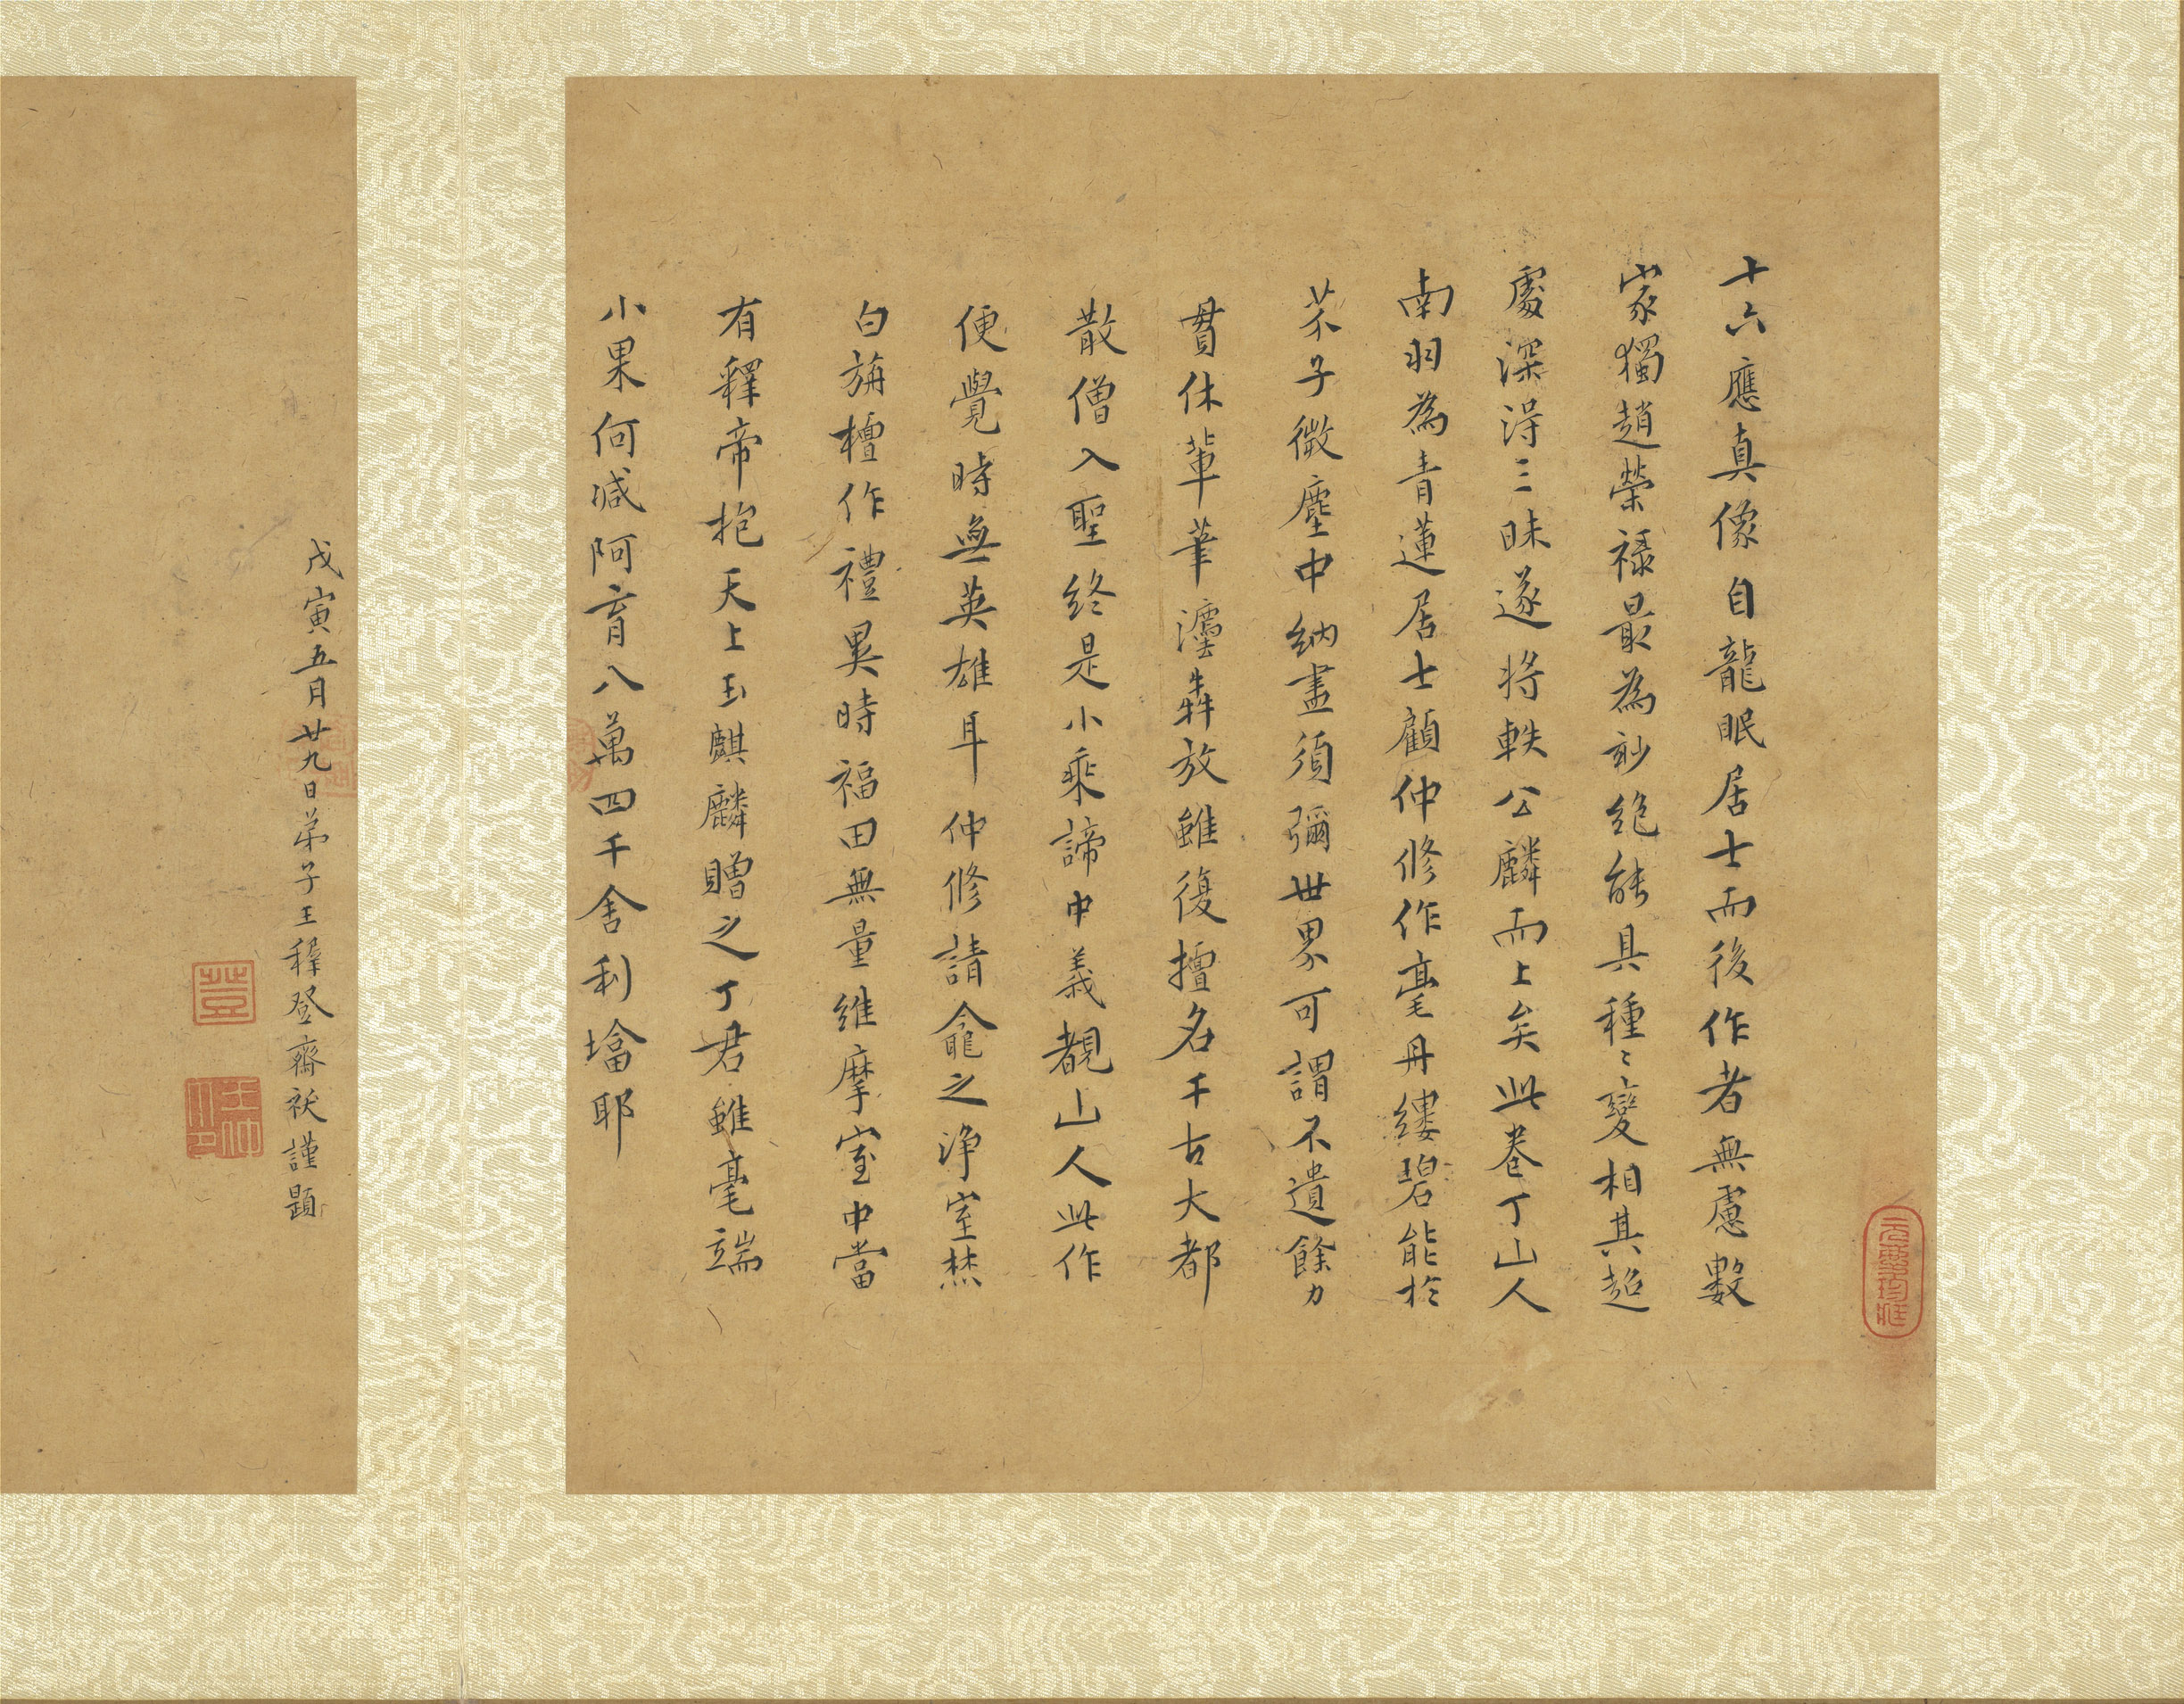 十六應真像自龍眠居士而後作者無慮數
家獨趙榮祿最為妙絕能具種種變相其超
處深得三昧遂將軼公麟而上矣此卷丁山人
南羽為青蓮居士顧仲修作毫丹縷碧能於
芥子微塵中納盡須彌世界可謂不遺餘力
貫休輩筆瀍犇放雖復擅名千古大都
散僧入聖終是小乘諦中義覩山人此作
便覺時無英雄耳仲修請龕之淨室焚
白旃檀作禮異時福田無量維摩室中當
有釋帝抱天上玉麒麟贈之丁君雖毫端
小果何減阿育八萬四千舍利墖耶
戊寅五月廿九日弟子王穉登齋祓謹題
登